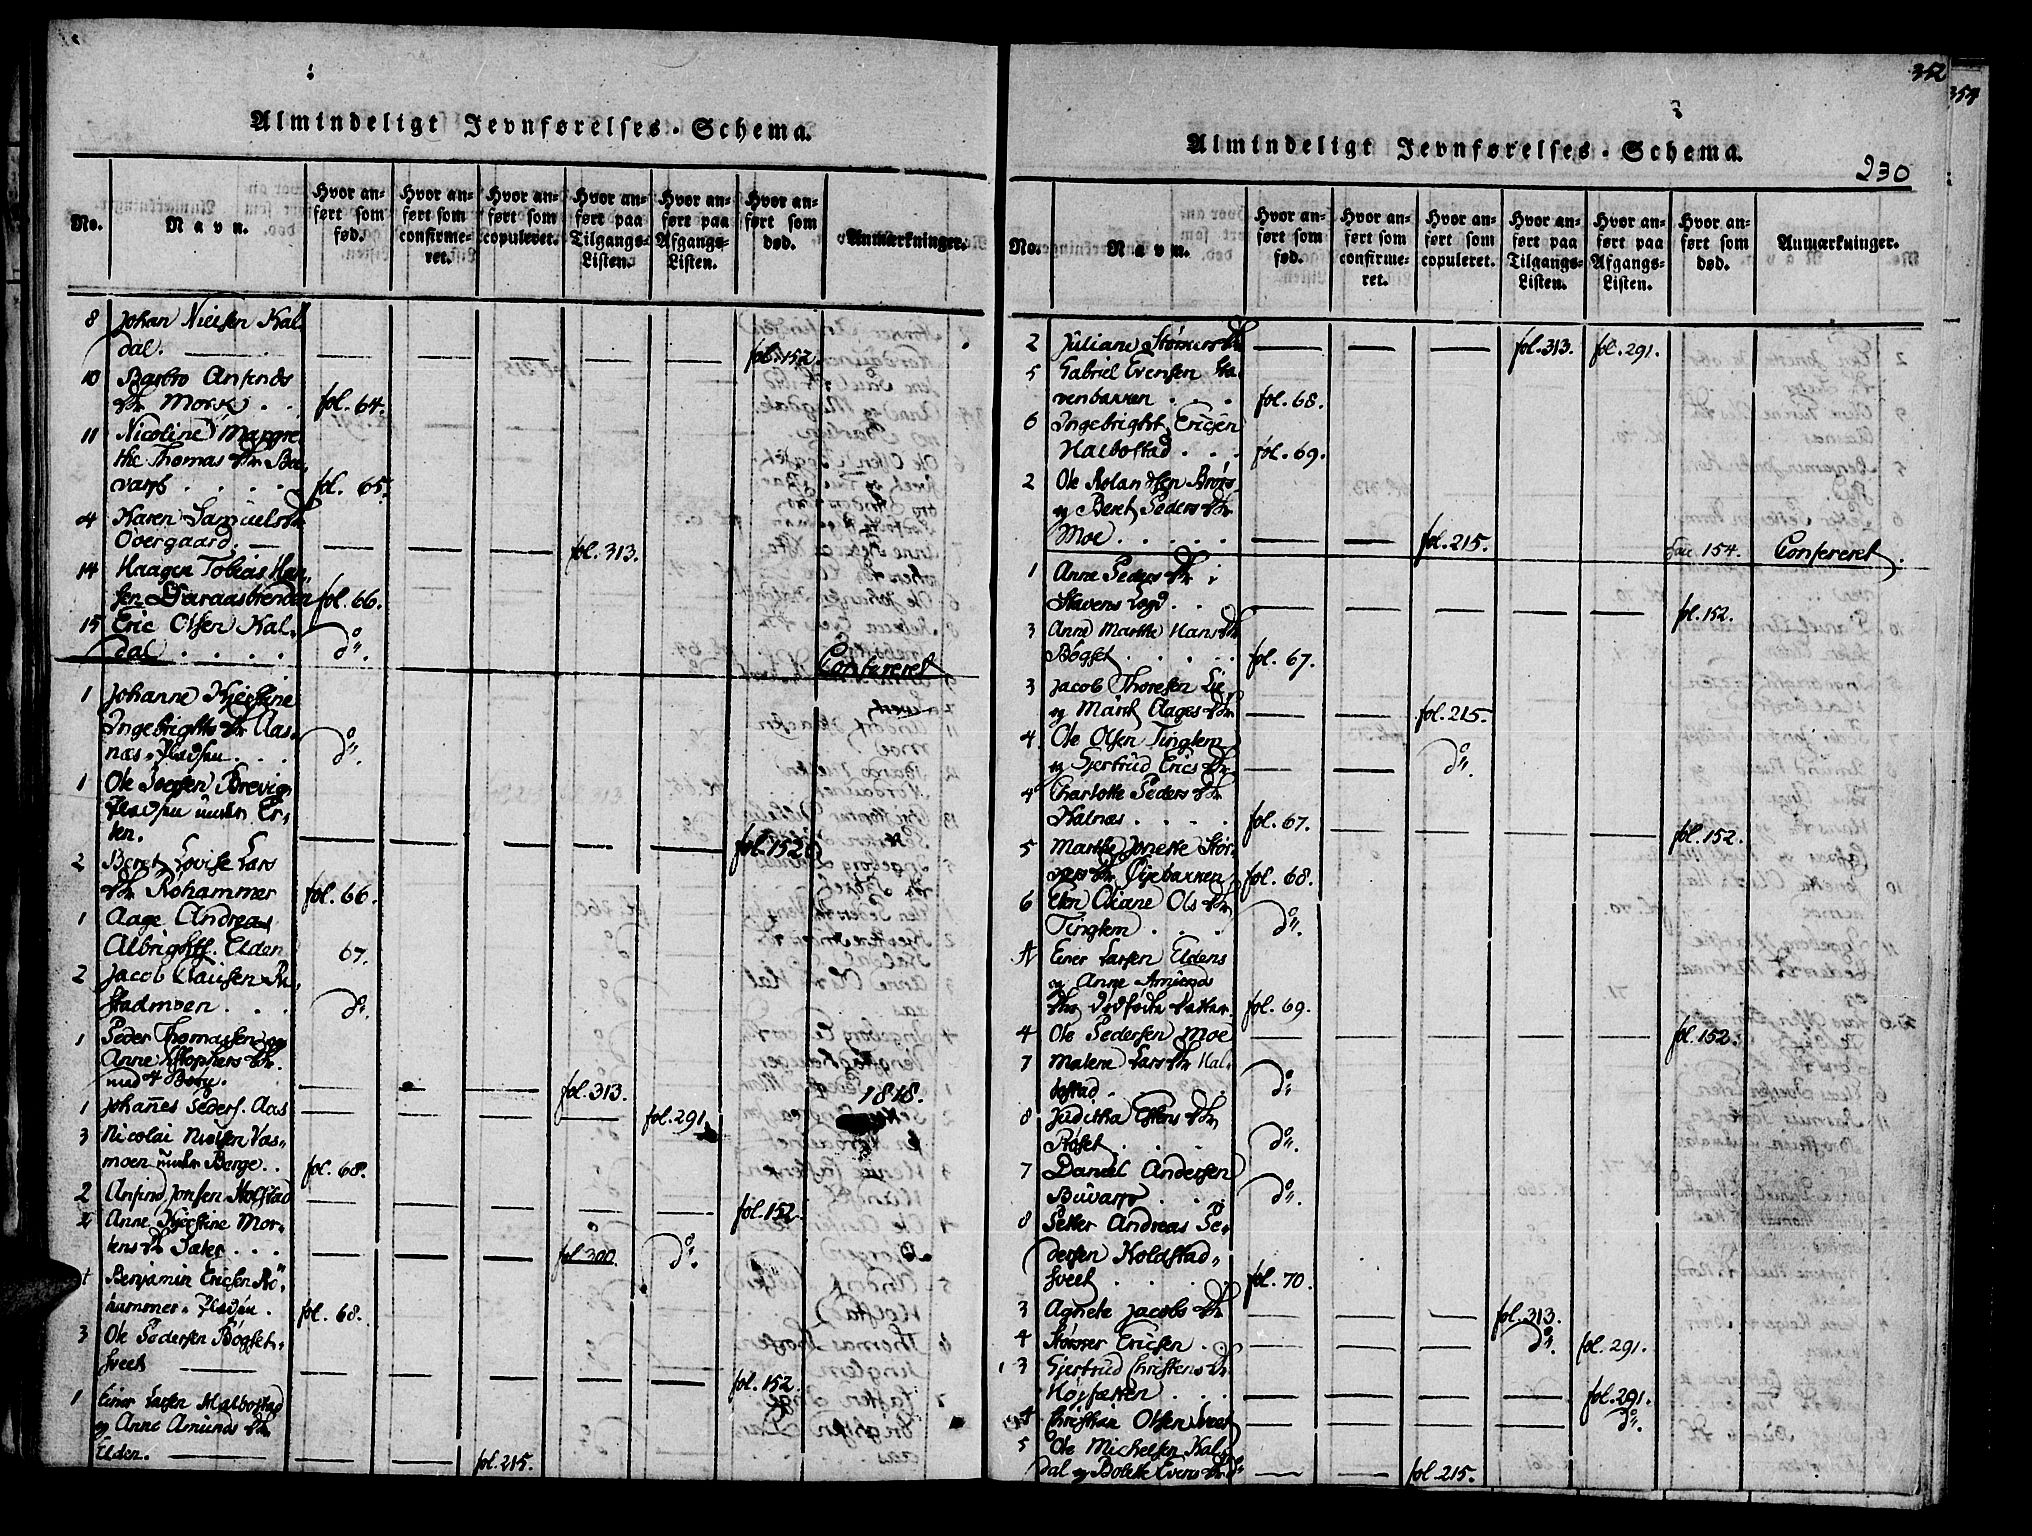 Almindeligt Jevnførelses-Schema.
No. Navn. Hvor anført som fød. Hvor anført som confirmeret. Hvor anført som copuleret. Hvor anført paa Tilgangs-Listen. Hvor anført paa Afgangs-Listen. Hvor anført som død. Anmærkninger.
8 Johan Nielsen Kal
dal. fol. 152.
10 Barbro Anfinds
dtr Mork . . fol. 64.
11 Nicoline Margre
the Thomas dtr Bu-
varp . . . . fol. 65.
4 Karen Samuels dtr
Overgaard. fol. 313.
14 Haagen Tobias Han-
sen Daraasbrenden fol. 66.
15 Eric Olsen Kal-
dal . . . . do.
Confereret
1 Johanne Kjerstine
Ingebrights dtr Aas-
næs-Pladsen . . . do.
1 Ole Joensen Brevig
Pladsen under Er-
ken. fol. 152
2 Beret Lovise Lars
dtr Rohammer fol. 66.
1 Aage Andreas
Albrightss. Elden 67.
2 Jacob Clausen
Stadmoen . . . do.
1 Peder Thomassen og
Anne dtr.
med 4 Børn. fol. 313.
1 Johannes Peders. Aas fol. 291 1818.
3 Nicolai Nielsen Aas-
moen under Borge . . fol. 68.
2 Anfind Jonsen Holstad fol. 152.
2 Anne Kjerstine Mor-
tens dtr Sæter . . . fol. 300. do.
Benjamin Ericsen Ro-
hammer-Pladsen . fol. 68.
3 Ole Pedersen Bøgset-
Sveet fol. 152.
1 Einer Larsen Malbostad
og Anne Amunds dtr
Elden. fol. 215.
352
354
Almindeligt Jevnførelses-Schema.
230
No. Navn. Hvor anført som fød. Hvor anført som confirmeret. Hvor anført som copuleret. Hvor anført paa Tilgangs-Listen. Hvor anført paa Afgangs-Listen. Hvor anført som død. Anmærkninger.
2 Juliane Størkers dtr fol. 313. fol. 291.
5 Gabriel Evensen Sta-
venbakken . . . fol. 68.
6 Ingebright Ericsen
Halbostad . . . fol. 69.
2 Ole Rolandsen
og Beret Peders dtr
Moe . . . . . fol. 215. 154. Confereret.
1 Anne Peders dtr
Stavens Logd . . fol. 152.
3 Anne Marthe Hans dtr
Bøgset . . . . . fol. 67.
3 Jacob Thoresen Lie
og Marit Aages dtr fol. 215.
4. Ole Olsen Tinglem
og Gjertrud Erics dtr do.
4 Charlotte Peders dtr
Kalnæs . . . . fol. 67. fol. 152.
5 Marthe Jonette Stør-
kers dtr Øyebakken fol. 68.
6 Elen Oliane Ols dtr
Tinglem . . . do.
Einer Larsen Eldens
og Anne Amunds
dtrs dødfødte Datter. fol. 69.
4 Ole Pedersen Moe fol. 152.
7 Malene Lars dtr Hal-
bostad . do.
8 Juditha Estens dtr
Røset . . . . do.
7 Daniel Andersen
Buvarp . . . do.
8 Petter Andreas Pe-
dersen Holdstad-
Sveet . . . . fol. 70.
3 Agnete Jacobs dtr fol. 313.
4 Størker Ericsen . do. fol. 291.
3 Gjertrud Christens dtr
Højsætten . . . fol. 291.
4 Christian Olsen Sveet do.
5 Ole Michelsen Kal-
dal og Bolette Evens dtr fol. 215.